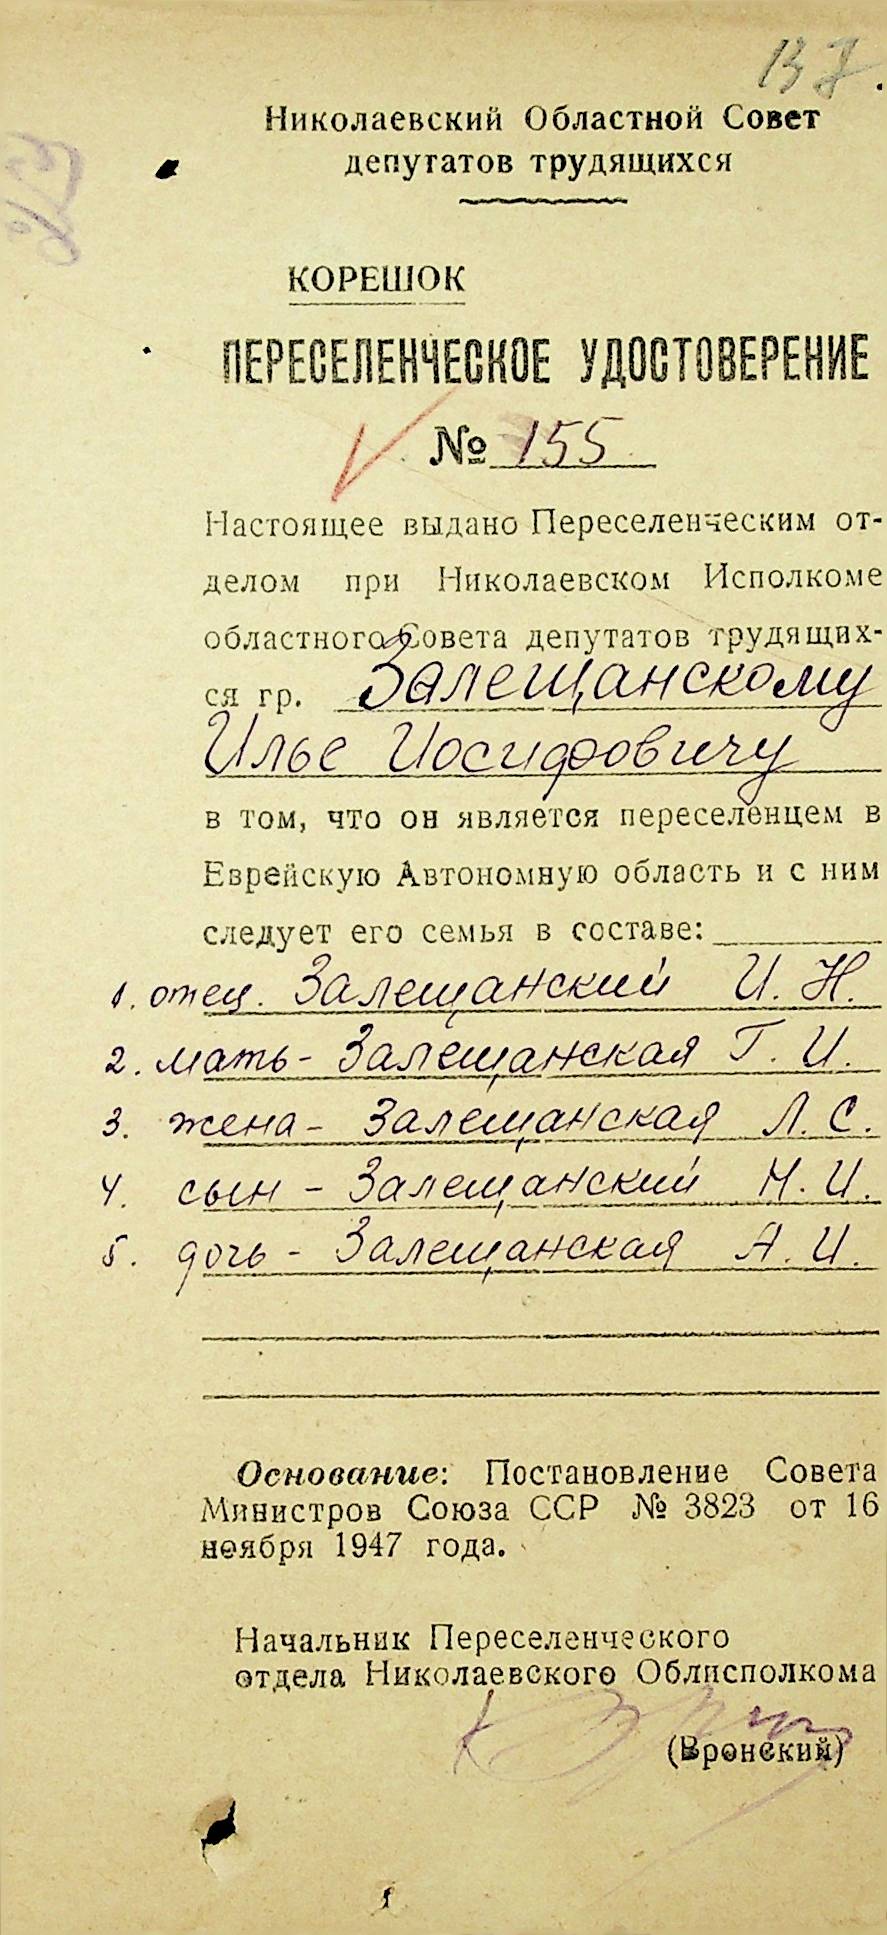 137.
Николаевский Областной Совет
депутатов трудящихся
КОРЕШОК
ПЕРЕСЕЛЕНЧЕСКОЕ УДОСТОВЕРЕНИЕ
№ 155
Настоящее выдано Переселенческим от-
делом при Николаевском Исполкоме
областного Совета депутатов трудящих-
ся гр. Залещанскому
Илье Иосифовичу
в том, что он является переселенцем в
Еврейскую Автономную область и с ним
следует его семья в составе:
1. отец. Залещанский И. Н.
2. мать - Залещанская Г. И.
3. жена - Залещанская Л. С.
4. сын - Залещанский Н. И.
5. дочь - Залещанская А. И.
Основание: Постановление Совета
Министров Союза ССР № 3823 от 16
ноября 1947 года.
Начальник Переселенческого
отдела Николаевского Облисполкома
(Вронский)